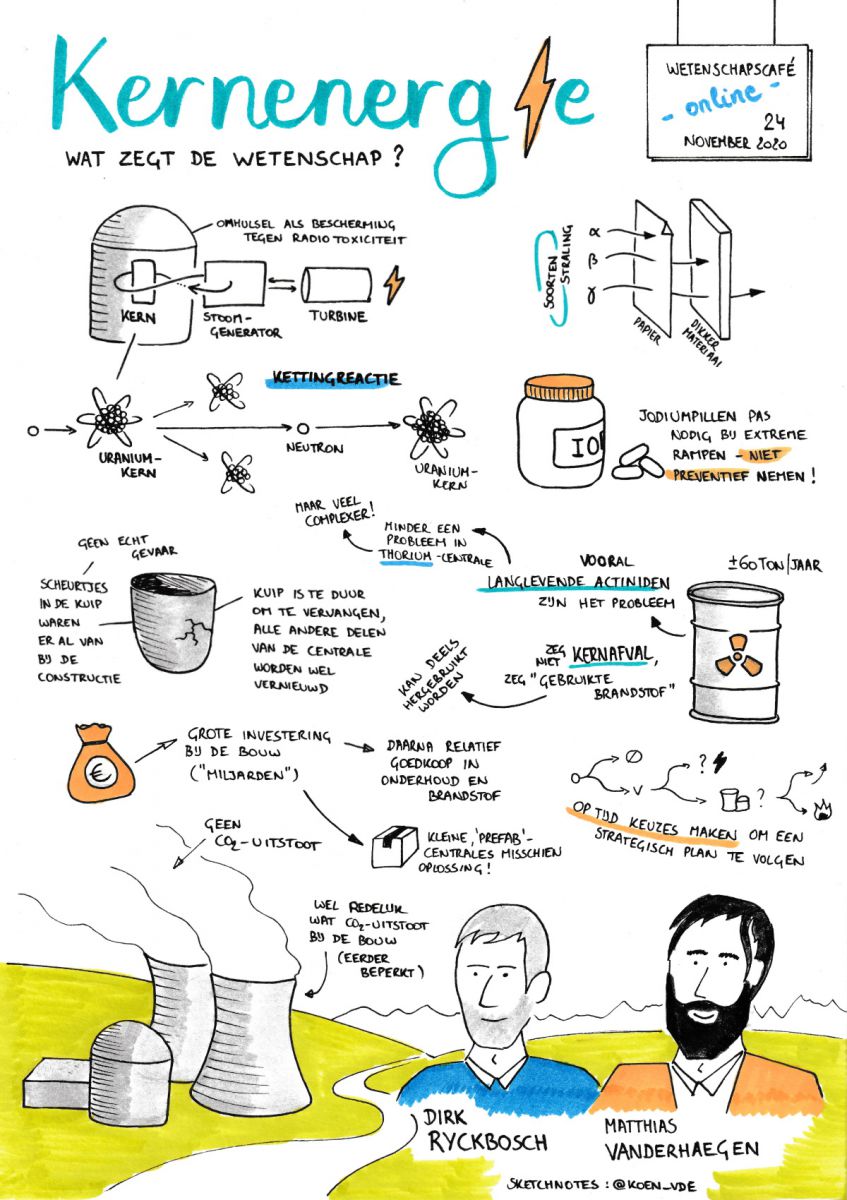 Kernenergie
WAT ZEGT DE WETENSCHAP ?
WETENSCHAPSCAFÉ
- online -
24
NOVEMBER 2020
OMHULSEL ALS BESCHERMING
TEGEN RADIOTOXICITEIT
KERN
STOOM-
GENERATOR
TURBINE
SOORTEN
STRALING
α
β
γ
PAPIER
DIKKER
MATERIAAL
KETTINGREACTIE
URANIUM-
KERN
NEUTRON
URANIUM-
KERN
IO
JODIUMPILLEN PAS
NODIG BIJ EXTREME
RAMPEN - NIET
PREVENTIEF NEMEN !
MAAR VEEL
COMPLEXER!
MINDER EEN
PROBLEEM IN
THORIUM-CENTRALE
VOORAL
LANGLEVENDE ACTINIDEN
ZIJN HET PROBLEEM
±60 TON/JAAR
GEEN ECHT
GEVAAR
SCHEURTJES
IN DE KUIP
WAREN
ER AL VAN
BIJ DE
CONSTRUCTIE
KUIP IS TE DUUR
OM TE VERVANGEN,
ALLE ANDERE DELEN
VAN DE CENTRALE
WORDEN WEL
VERNIEUWD
KAN DEELS
HERGEBRUIKT
WORDEN
ZEG
NIET KERNAFVAL,
ZEG "GEBRUIKTE
BRANDSTOF"
€
GROTE INVESTERING
BIJ DE BOUW
("MILJARDEN")
DAARNA RELATIEF
GOEDKOOP IN
ONDERHOUD EN
BRANDSTOF
KLEINE, 'PREFAB'-
CENTRALES MISSCHIEN
OPLOSSING!
?
?
OP TIJD KEUZES MAKEN OM EEN
STRATEGISCH PLAN TE VOLGEN
GEEN
CO2-UITSTOOT
WEL REDELIJK
WAT CO2-UITSTOOT
BIJ DE BOUW
(EERDER
BEPERKT)
DIRK
RYCKBOSCH
MATTHIAS
VANDERHAEGEN
SKETCHNOTES : @KOEN_VDE